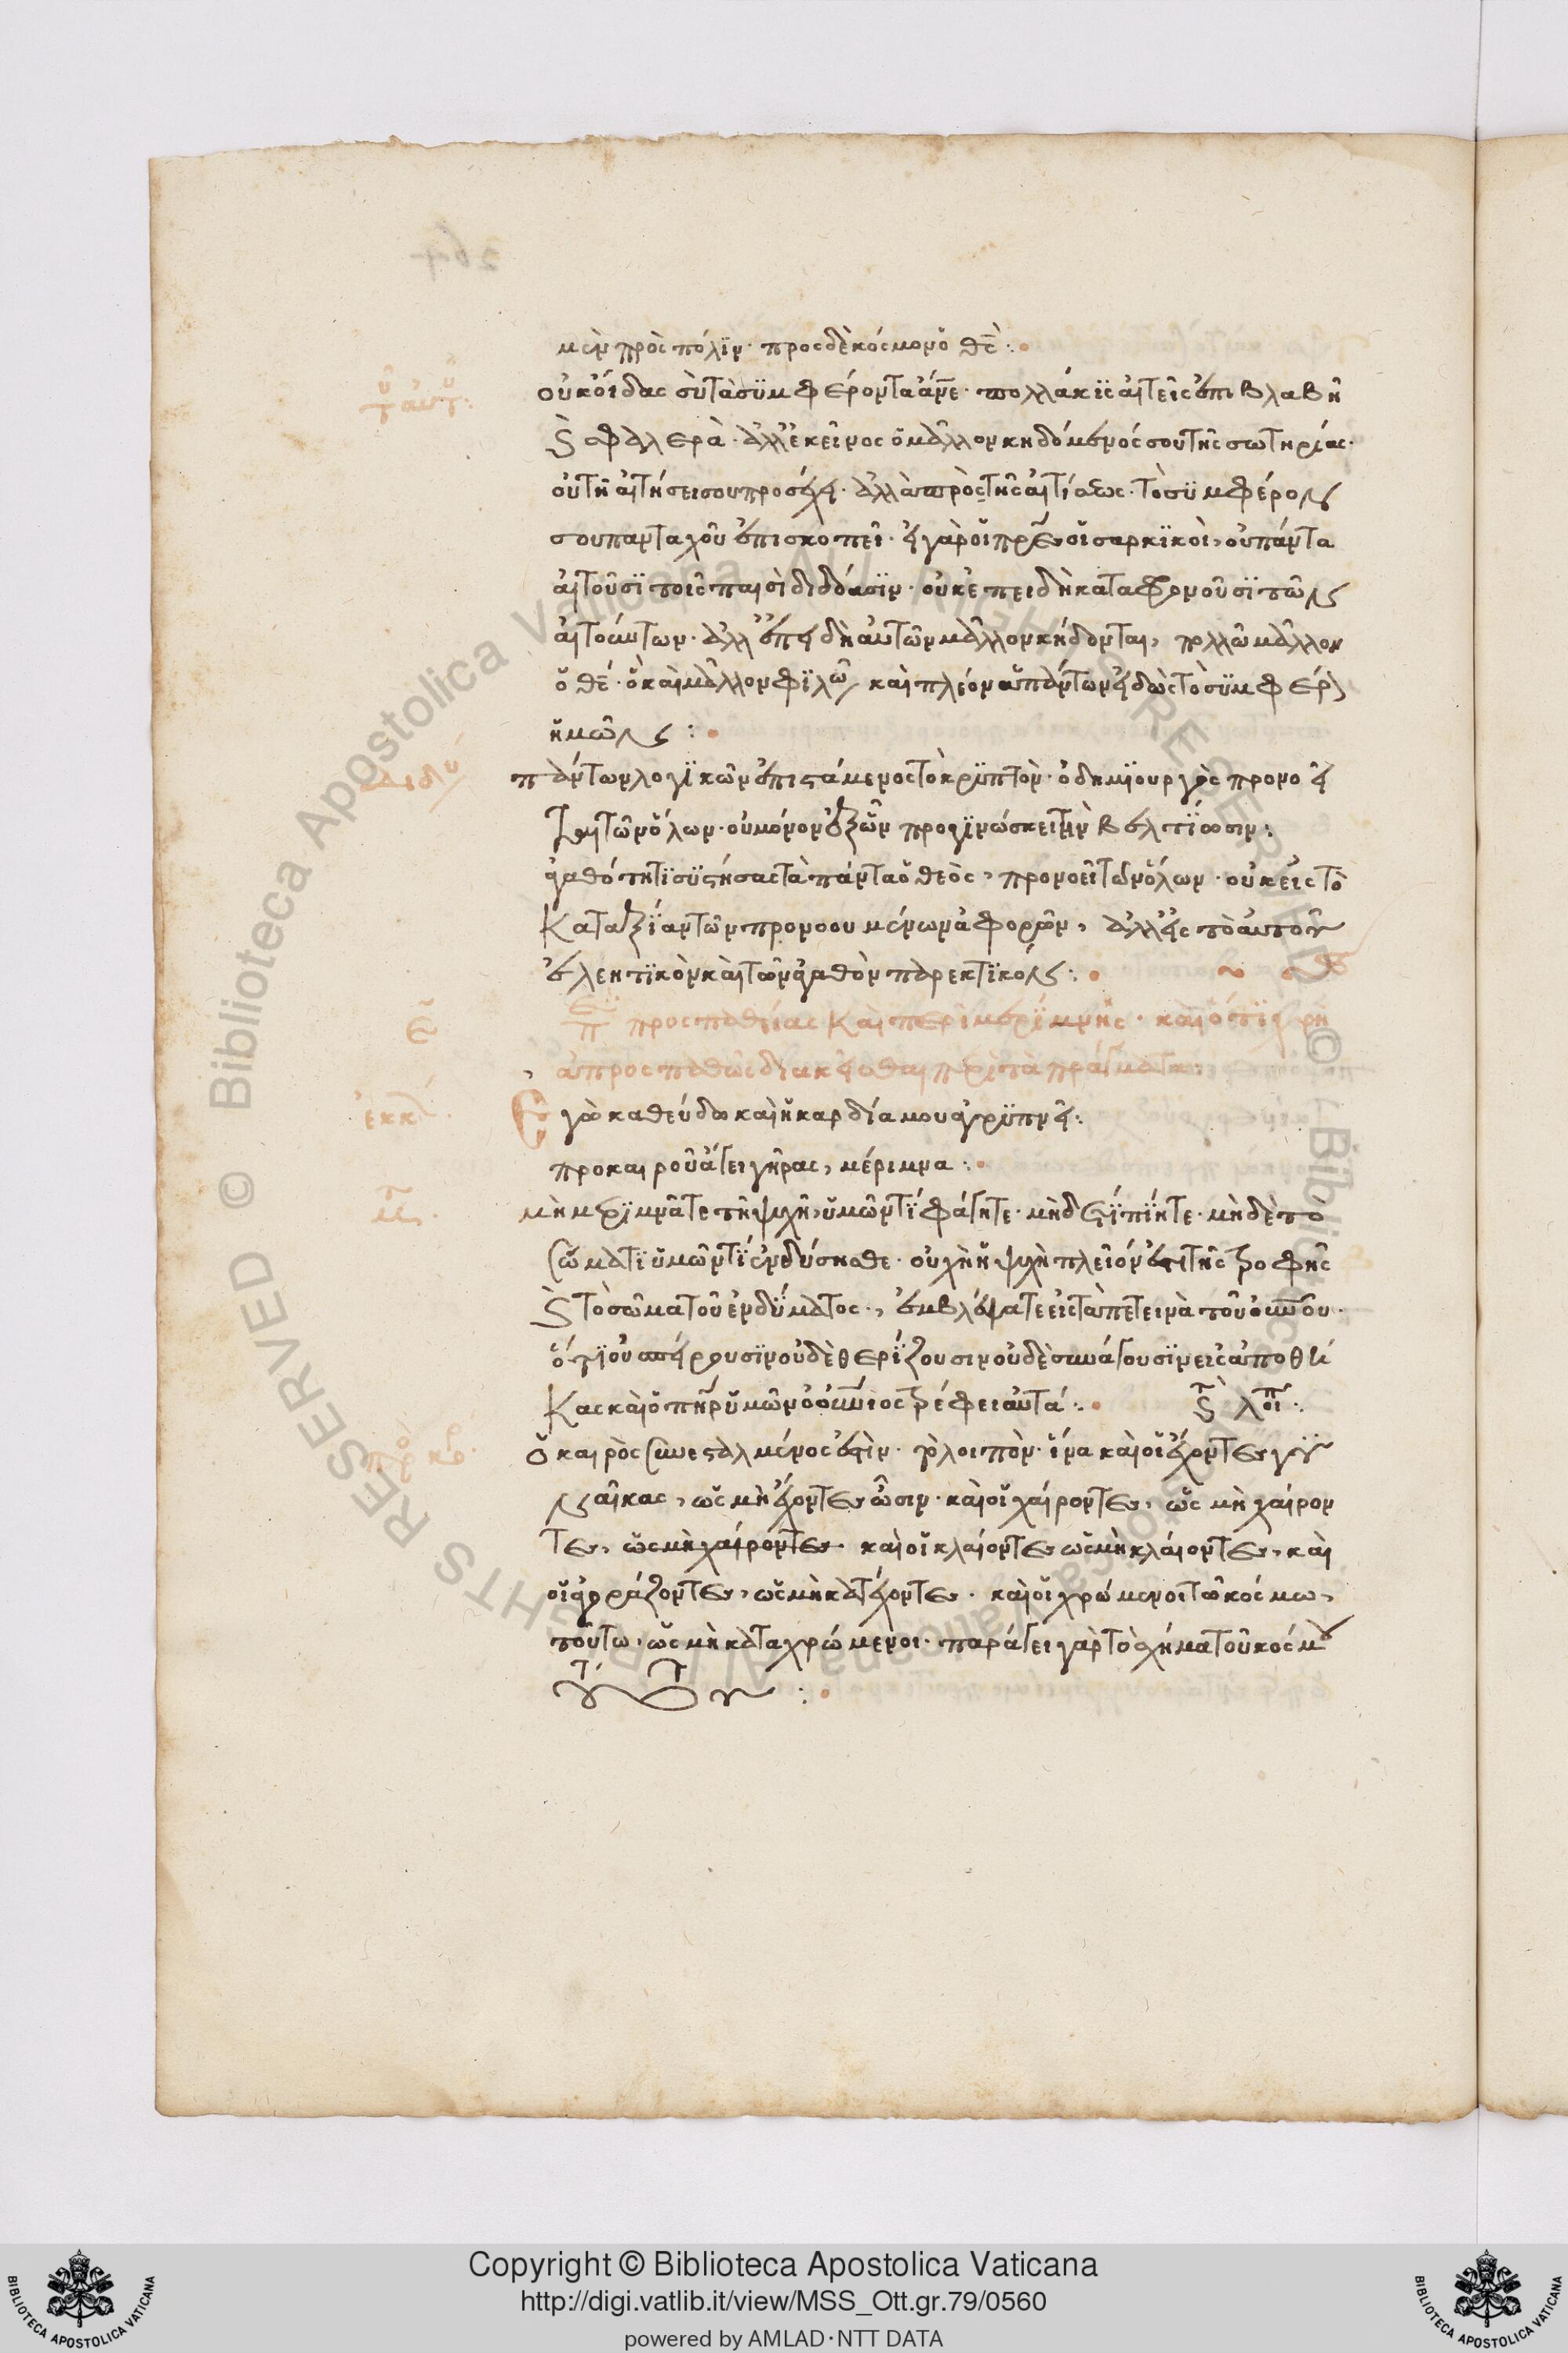 μὲν πρὸς πόλιν· πρὸς δὲ κόσμον ὁ θς̅:
τ αυτ:
οὐκ οἶδας σὺ τὰ συμφέροντα ἄνε· πολλάκις αἰτεῖς ἐπιβλαβῆ
καὶ σφαλερά· ἀλλ' ἐκεῖνος ὁ μᾶλλον κηδόμενός σου τῆς σωτηρίας·
οὐ τῇ αἰτήσει σου προσέχει· ἀλλὰ πρὸ τῆς αἰτήσεως· τὸ συμφέρον
σου πανταχοῦ ἐπισκοπεῖ· εἰ γὰρ οἱ πρες οἱ σαρκικοὶ, οὐ πάντα
αἰτοῦσι τοῖς παισὶ διδόασιν· οὐκ ἐπειδὴ καταφρονοῦσι τῶν
αἰτούντων· ἀλλ' ἐπειδὴ αὐτῶν μᾶλλον κήδονται, πολλῶ μᾶλλον
ὁ θς· ὁ καὶ μᾶλλον φιλῶν καὶ πλέον ἁπάντων εἰδὼς τὸ συμφέρον
ἡμῶν:
Διδύ
πάντων λογικῶν ἐπιστάμενος τὸ κρυπτόν· ὁ δημιουργὸς προνοεῖ
τῶν ὅλων· οὐ μόνον προγινώσκει τὴν βελτίωσιν:
ἀγαθότητι συστήσας τὰ πάντα ὁ θεὸς, προνοεῖ τῶν ὅλων· οὐκ εἰς τὸ
κατ' ἀξίαν τῶν προνοουμένων ἀφορῶν, ἀλλ' εἰς τὸ αὐτοῦ
ἐλεητικὸν καὶ τῶν ἀγαθῶν παρεκτικόν:
π προσπαθείας καὶ περὶ μερίμνης· καὶ ὅτι χρὴ
ἀπροσπαθῶς διακεῖσθαι περὶ τὰ πράγματα:
ἐκκλ
Ἐγὼ καθεύδω καὶ ἡ καρδία μου ἀγρυπνεῖ:
προ καιροῦ ἄγει γῆρας, μέριμνα:
Μτ
μὴ μεριμνᾶτε τῇ ψυχῇ ὑμῶν τί φάγητε· μηδὲ τί πίητε· μὴ δὲ τῶ
σώματι ὑμῶν τί ἐνδύσησθε· οὐχὴ ἡ ψυχὴ πλεῖόν ἐστι τῆς τροφῆς
καὶ τὸ σῶμα τοῦ ἐνδύματος·, ἐμβλέψατε εἰς τὰ πετεινὰ τοῦ οὐνου·
ὅτι οὐ σπείρουσιν οὐδὲ θερίζουσιν οὐδὲ συνάγουσιν εἰς ἀποθή
κας καὶ ὁ πηρ ὑμῶν ὁ οὐνιος τρέφει αὐτά: καὶ τ λοιπ:
πρ κορ
Ὁ καιρὸς συνεσταλμένος ἐστὶν· τὸ λοιπὸν· ἵνα καὶ οἱ ἔχοντες γυ
ναῖκας, ὡς μὴ ἔχοντες ὦσιν· καὶ οἱ χαίροντες, ὡς μὴ χαίρον
τες, ὡς μὴ χαίροντες καὶ οἱ κλαίοντες ὡς μὴ κλαίοντες, καὶ
οἱ ἀγοράζοντες, ὡς μὴ κατέχοντες· καὶ οἱ χρώμενοι τῶ κόσμω,
τούτω, ὡς μὴ καταχρώμενοι· παράγει γὰρ τὸ σχῆμα τοῦ κόσμου
τούτου:
Copyright © Biblioteca Apostolica Vaticana
http://digi.vatlib.it/view/MSS_Ott.gr.79/0560
powered by AMLAD·NTT DATA